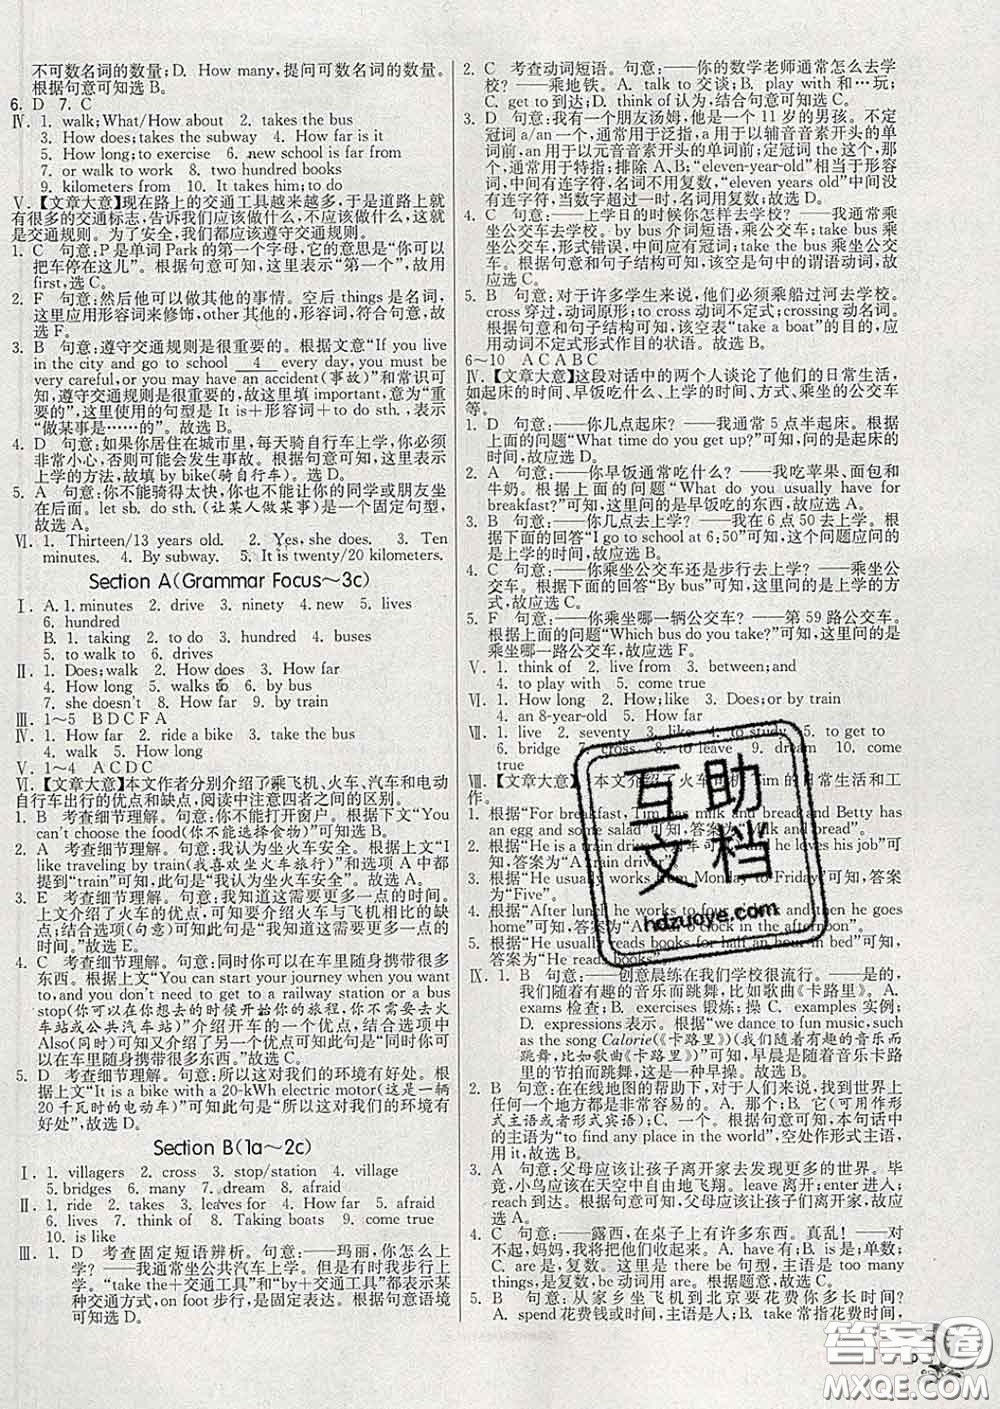 不可数名词的数量;D. How many,提问可数名词的数量。
根据句意可知选 B。
6. D 7. C
Ⅳ. 1. walk;What/How about 2. takes the bus
3. How does;takes the subway 4. How far is it
5. How long;to exercise 6. new school is far from
7. or walk to work 8. two hundred books
9. kilometers from 10. It takes him;to do
Ⅴ.【文章大意】现在路上的交通工具越来越多,于是道路上就
有很多的交通标志,告诉我们应该做什么,不应该做什么,这就
是交通规则。为了安全,我们都应该遵守交通规则。
1. C 句意:P是单词 Park 的第一个字母,它的意思是“你可以
把车停在这儿”。根据句意可知,这里表示“第一个”,故用
first,选 C。
2. F 句意:然后他可以做其他的事情。空后 things 是名词,
这里应用形容词来修饰,other 其他的,形容词,符合句意,故
选 F。
3. B 句意:遵守交通规则是很重要的。根据文意“If you live
in the city and go to school 4 every day,you must be
very careful,or you may have an accident(事故)”和常识可
知,遵守交通规则是很重要的,故这里填 important,意为“重
要的”,这里使用的句型是 It is+形容词+to do sth. ,表示
“做某事是……的”。故选 B。
4. D 句意:如果你居住在城市里,每天骑自行车上学,你必须
非常小心,否则可能会发生事故。根据句意可知,这里表示
上学的方法,故填 by bike(骑自行车)。选 D。
5. A 句意:你不能骑得太快,你也不能让你的同学或朋友坐
在后面。let sb. do sth. (让某人做某事)是一个固定句型,
故选 A。
Ⅵ. 1. Thirteen/13 years old. 2. Yes,she does. 3. Ten
minutes. 4. By subway. 5. It is twenty/20 kilometers.
Section A(Grammar Focus~3c)
Ⅰ. A. 1. minutes 2. drive 3. ninety 4. new 5. lives
6. hundred
B. 1. taking 2. to do 3. hundred 4. buses
5. to walk to 6. drives
Ⅱ. 1. Does;walk 2. How does 3. How far
4. How long 5. walks to 6. by bus
7. she doesn't 8. How far 9. by train
Ⅲ. 1~5 B D C F A
Ⅳ. 1. How far 2. ride a bike 3. take the bus
4. walk 5. How long
Ⅴ. 1~4 A C D C
Ⅵ.【文章大意】本文作者分别介绍了乘飞机、火车、汽车和电动
自行车出行的优点和缺点,阅读中注意四者之间的区别。
1. B 考查细节理解。句意:你不能打开窗户。根据下文“You
can't choose the food(你不能选择食物)”可知选 B。
2. A 考查细节理解。句意:我认为坐火车安全。根据上文“I
like traveling by train(我喜欢坐火车旅行)”和选项 A 中都
提到“train”可知,此句是“我认为坐火车安全”。故选 A。
3. E 考查细节理解。句意:我知道这需要更多一点的时间。
上文介绍了火车的优点,可知要介绍火车与飞机相比的缺
点,结合选项(句意)可知此句是“我知道这需要更多一点的
时间。”故选 E。
4. C 考查细节理解。句意:同时你可以在车里随身携带很多
东西。根据上文“You can start your journey when you want
to,and you don't need to get to a railway station or a bus
stop(你可以在你想去的时候开始你的旅程,你不需要去火
车站或公共汽车站)”介绍开车的一个优点,结合选项中
Also(同时)可知又介绍了另一个优点可知此句是“同时你可
以在车里随身携带很多东西。”故选 C。
5. D 考查细节理解。句意:所以这对我们的环境有好处。根
据上文“It is a bike with a 20-kWh electric motor(这是一辆
20 千瓦时的电动车)”可知此句是“所以这对我们的环境有
好处”,故选 D。
Section B(1a~2c)
Ⅰ. 1. villagers 2. cross 3. stop/station 4. village
5. bridges 6. many 7. dream 8. afraid
Ⅱ. 1. ride 2. takes 3. leaves for 4. How 5. afraid
6. lives 7. think of 8. Taking boats 9. come true
10. is like
Ⅲ. 1. D 考查固定短语辨析。句意:——玛丽,你怎么上
学?——我通常坐公共汽车上学。但是有时我步行上学。
“take the+交通工具”和“by+交通工具”都表示某
种交通方式,on foot 步行,是固定表达。根据句意语境
可知选 D。
2. C 考查动词短语。句意:——你的数学老师通常怎么去学
校?——乘地铁。A. talk to 交谈;B. play with 和……玩;
C. get to 到达;D. think of 认为,结合句意可知选 C。
3. D 句意:我有一个朋友汤姆,他是一个 11 岁的男孩。不定
冠词 a/an 一个,通常用于泛指,a 用于以辅音音素开头的单
词前,an 用于以元音音素开头的单词前;定冠词 the 这个,那
个,通常用于特指;排除 A、B;“eleven-year-old”相当于形容
词,中间有连字符,名词不用复数,“eleven years old”中间没
有连字符,当数字超过一时,名词用复数;故选 D。
4. C 句意:——上学日的时候你怎样去学校?——我通常乘
坐公交车去学校。by bus 介词短语,乘公交车;take bus 乘
坐公交车,形式错误,中间应有冠词;take the bus 乘坐公交
车。根据句意和句子结构可知,该空是句中的谓语动词,故
应选 C。
5. B 句意:对于许多学生来说,他们必须乘船过河去学校。
cross 穿过,动词原形;to cross 动词不定式;crossing 动名词。
根据句意和句子结构可知,该空表“take a boat”的目的,应
用动词不定式形式作目的状语。故选 B。
6~10 A C A B C
Ⅳ.【文章大意】这段对话中的两个人谈论了他们的日常生活,
如起床的时间、早饭吃什么、上学的时间、方式、乘坐的公交车
等。
1. D 句意:——你几点起床?——我通常 5 点半起床。根据
上面的问题“What time do you get up?”可知,问的是起床的
时间,故应选 D。
2. A 句意:——你早饭通常吃什么?——我吃苹果、面包和
牛奶。根据上面的问题“What do you usually have for
breakfast?”可知,这里问的是早饭吃的东西,故应选 A。
3. B 句意:——你几点去上学?——我在 6 点 50 去上学。根
据下面的回答“I go to school at 6:50”可知,这个问题应问的
是几点去上学,故应选 B。
4. C 句意:——你乘坐公交车还是步行去上学?——乘坐公
交车。根据下面的回答“By bus”可知,这里问的是上学的方
式,故应选 C。
5. F 句意:——你乘坐哪一辆公交车?——第 59 路公交车。
根据上面的问题“Which bus do you take?”可知,这里问的是
乘坐哪一路公交车,故应选 F。
Ⅴ. 1. think of 2. live from 3. between;and
4. to play with 5. come true
Ⅵ. 1. How long 2. How;like 3. Does;or by train
4. an 8-year-old 5. How far
Ⅶ. 1. live 2. seventy 3. village 4. to study 5. to
6. bridge 7. cross 8. to leave 9. dream 10. come
true
Ⅷ.【文章大意】本文介绍了火车司机 Tim 的日常生活和工
作。
1. 根据“For breakfast, Tim has milk and bread and Betty has
an egg and some salad”可知,答案为“Milk and bread”。
2. 根据“He is a train driver”可知,答案为“A train driver”。 he loves his job”可
知,
3. 根据“He usually works from Monday to Friday”可知,答案
为“Five”。
4. 根据“After lunch he works to four and then he goes
home”可知,答案为“At 4 o'clock in the afternoon”。
5. 根据“He usually reads books for half an hour in bed”可知,
答案为“He reads books”。
Ⅸ. 1. B 句意:——创意晨练在我们学校很流行。——是的,
我们随着有趣的音乐而跳舞,比如歌曲《卡路里》。A.
exams 检查;B. exercises 锻炼;操 C. examples 实例;
D. expressions 表示。根据“we dance to fun music,such
as the song Calorie(《卡路里》)(我们随着有趣的音乐而
跳舞,比如歌曲《卡路里》)”可知,早晨是随着音乐卡路里
的节拍而跳舞,这是一种早操。故选 B。
2. B 句意:在在线地图的帮助下,对于人们来说,找到世界上
任何一个地方是非常容易的。A. 那个;B. 它(可用作形
式主语或者形式宾语);C. 一个。根据句意可知,本句话中
的主语为“to find any place in the world”,空处作形式主语,
用 it,故选 B。
3. A 句意:父母应该让孩子离开家去发现更多的世界。毕
竟,小鸟应该在天空中自由地飞翔。leave 离开;enter 进入;
reach 到达。根据句意可知,父母应该让孩子们离开家,故应
选 A。
4. C 句意:——露西,在桌子上有许多东西。真乱!——对
不起,妈妈,我将把它们收起来。A. have 有;B. is 是,单数;
C. are 是,复数。这里用 there be 句型,主语是 too many
things,是复数,be 动词用 are。根据题意,故选 C。
5. B 句意:从家乡坐飞机到北京要花费你多长时间?
A. spend 花费钱或时间,主语是人;B. take 常指花费时间,
互助文档
hdzuoye.com
答案圈
MXQE.COM